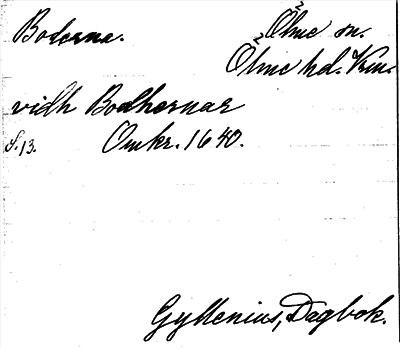 Boderna. Ölme sn.
Ölme hd. Vrm.
vidh Bodhernar
S. 13. Omkr. 1640.
Gyllenius, Dagbok.